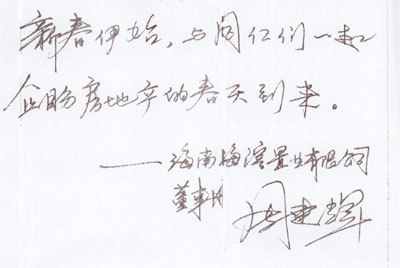 新春伊始，与同仁们一起
企盼房地产的春天到来。
——海南海滨置业有限公司
董事长 周建辉